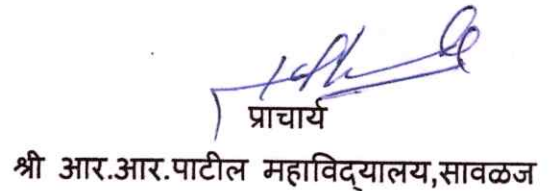 प्राचार्य
श्री आर.आर.पाटील महाविद्यालय,सावळज